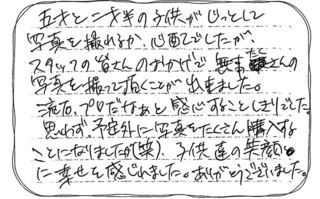 五才と二才半の子供がじっとして
写真を撮れるか、心配でしたが、
スタッフの皆さんのおかげで さんの
写真を撮って頂くことが出来ました。
流石、プロだなぁと感心することしきりでした。
思わず、予定外に写真をたくさん購入する
ことになりましたが(笑)、子供達の笑顔
に幸せを感じれました。ありがとうございました。